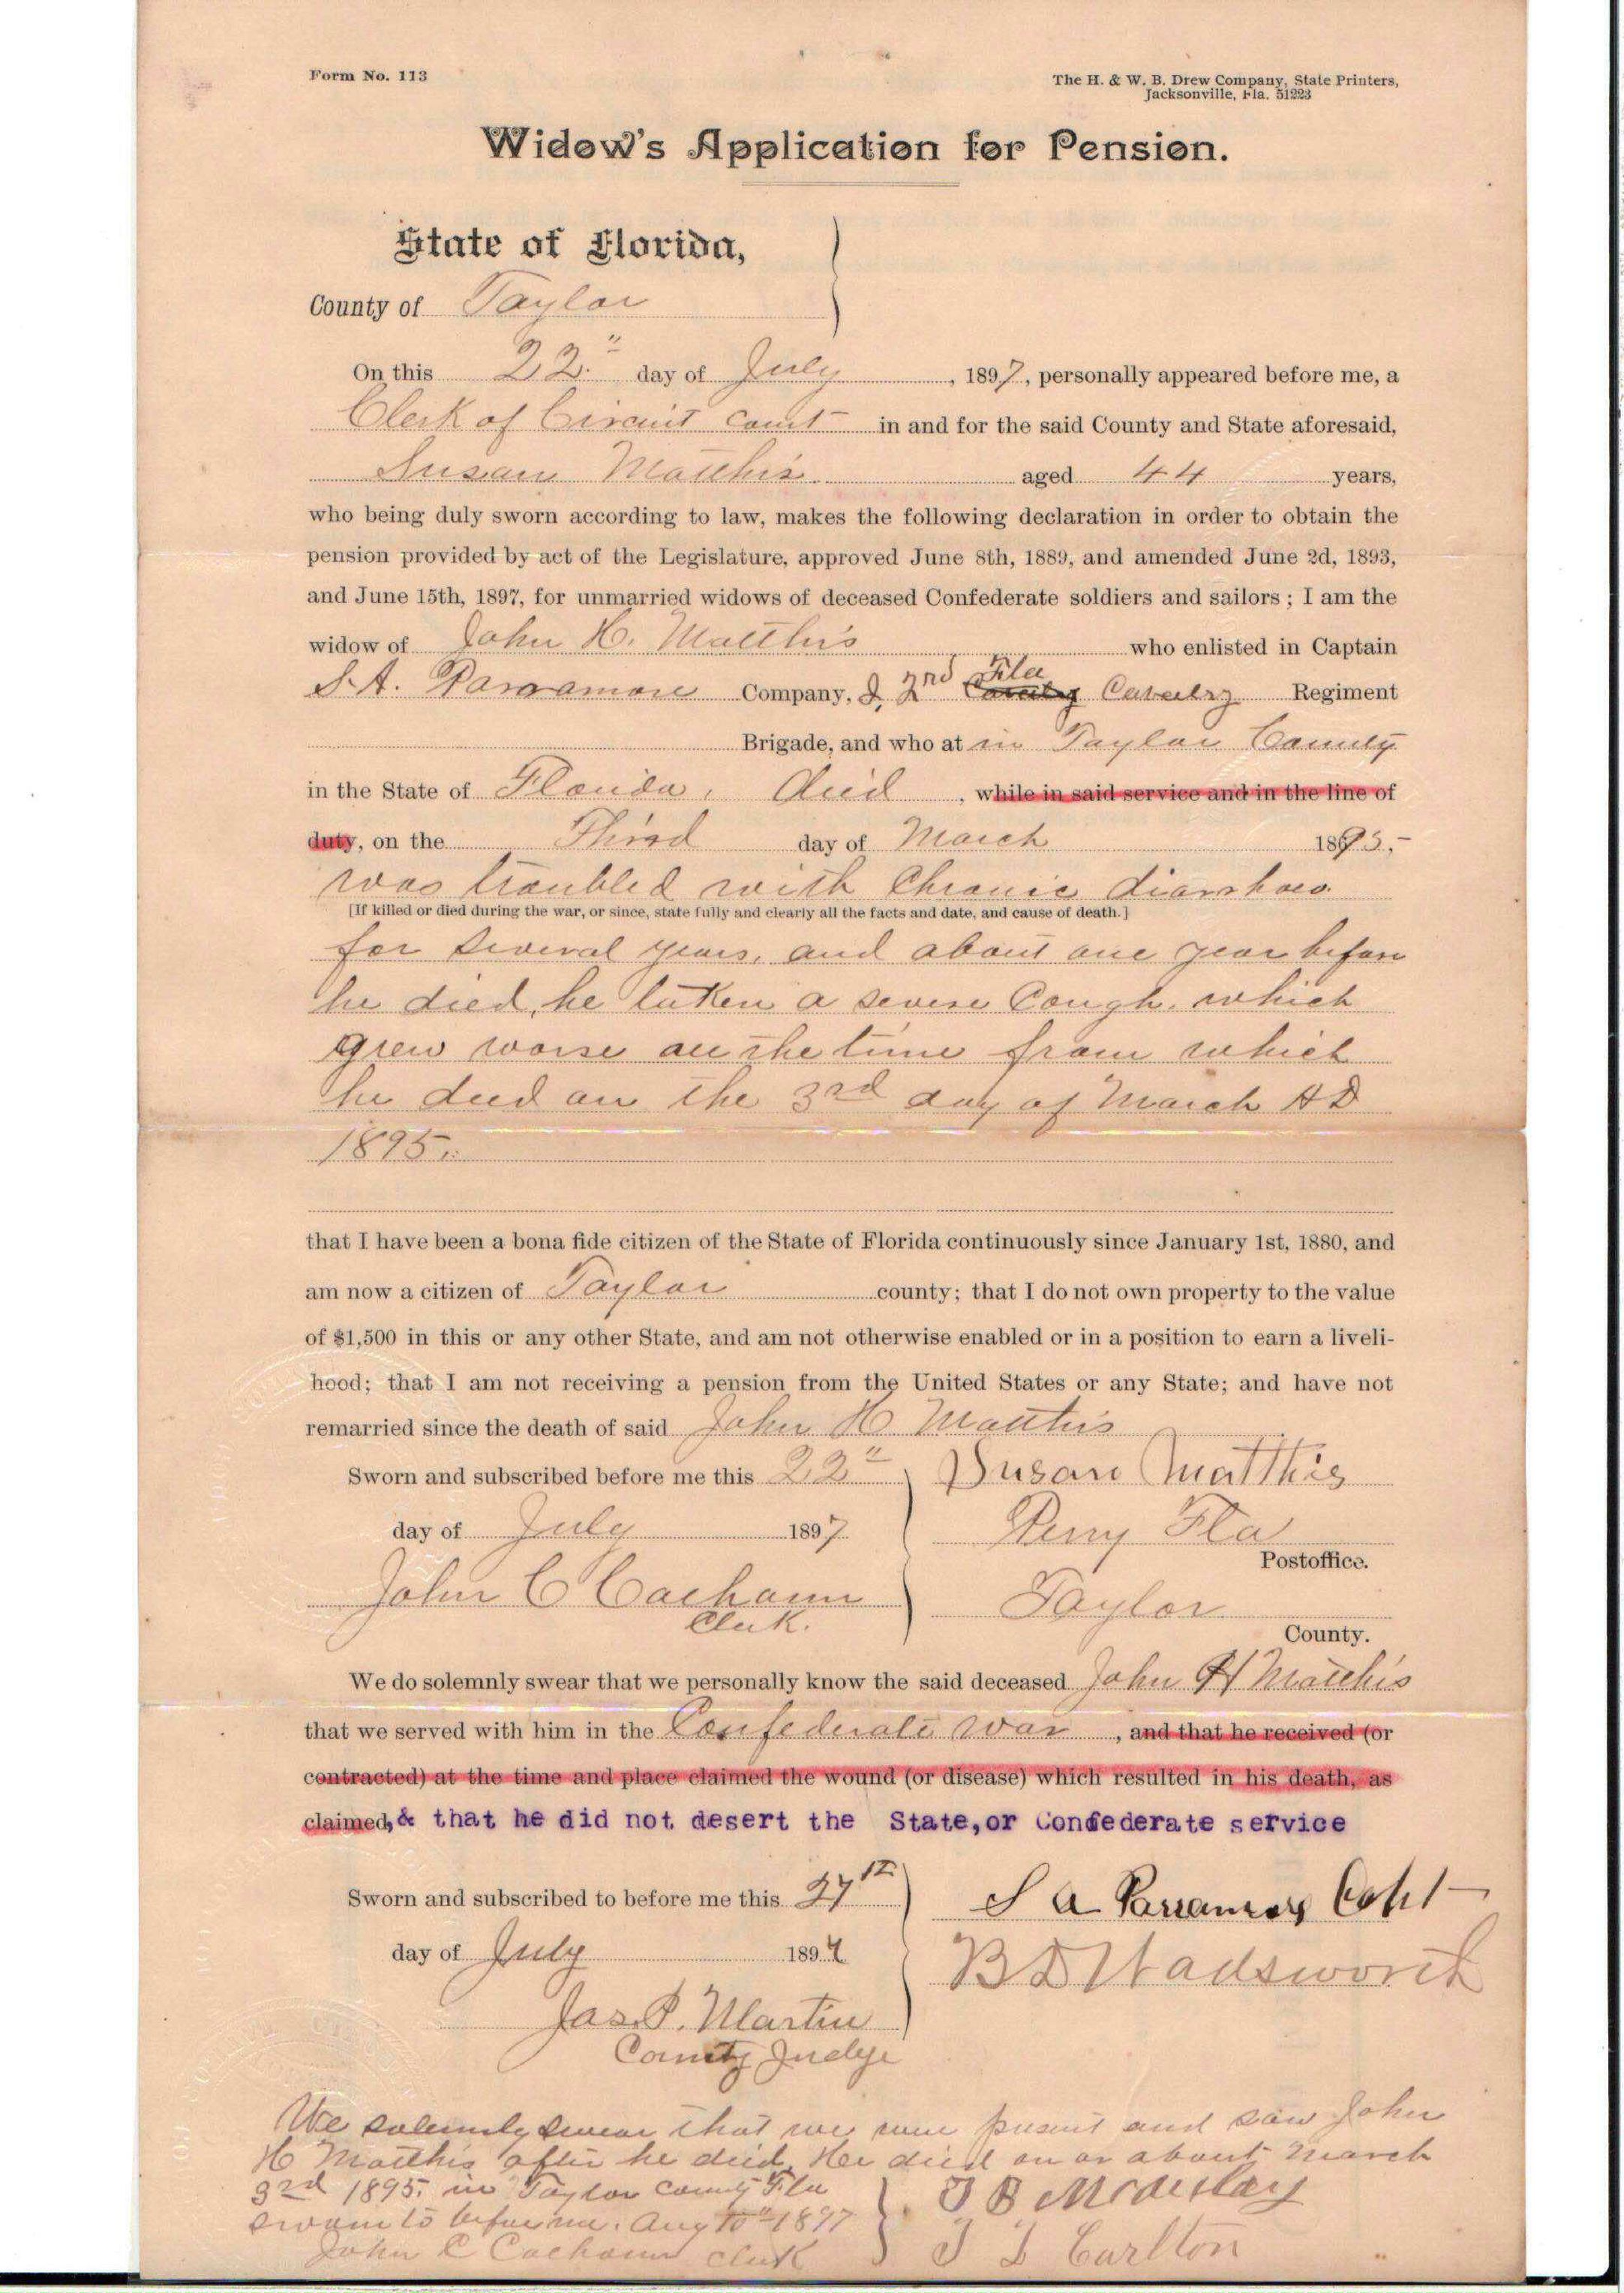 Form No. 113
The H. & W. B. Drew Company, State Printers,
Jacksonville, Fla. 51223
Widow's Application for Pension.
State of Florida,
County of Taylor
On this 22" day of July, 1897, personally appeared before me, a
Clerk of Circuit Court in and for the said County and State aforesaid,
Susan Matthis aged 44 years,
who being duly sworn according to law, makes the following declaration in order to obtain the
pension provided by act of the Legislature, approved June 8th, 1889, and amended June 2d, 1893,
and June 15th, 1897, for unmarried widows of deceased Confederate soldiers and sailors; I am the
widow of John H. Matthis who enlisted in Captain
S. A. Parramore Company, 2nd Fla Cavalry Regiment
Brigade, and who at in Taylor County
in the State of Florida, died, while in said service and in the line of
duty, on the Third day of March 1895,
was troubled with Chronic diarrhoea
[If killed or died during the war, or since, state fully and clearly all the facts and date, and cause of death.]
for several years, and about one year before
he died, he taken a severe Cough, which
grew worse all the time from which
he died on the 3rd day of March AD
1895.
that I have been a bona fide citizen of the State of Florida continuously since January 1st, 1880, and
am now a citizen of Taylor county; that I do not own property to the value
of $1,500 in this or any other State, and am not otherwise enabled or in a position to earn a liveli-
hood; that I am not receiving a pension from the United States or any State; and have not
remarried since the death of said John H Matthis
Sworn and subscribed before me this 22" Susan Matthis
day of July 1897 Perry Fla
Postoffice.
John C Calhoun Taylor
Clerk.
County.
We do solemnly swear that we personally know the said deceased John H Matthis
that we served with him in the Confederate war, and that he received (or
contracted) at the time and place claimed the wound (or disease) which resulted in his death, as
claimed, & that he did not desert the State, or Confederate service
Sworn and subscribed to before me this 27th S A Parramore Capt
day of July 1897 B D Wadsworth
Jas. P. Martin
County Judge
We solemnly swear that we were present and saw John
H Matthis after he died. He died on or about March
3rd 1895. in Taylor County Fla
sworn to before me. Aug 10" 1897
John C Calhoun clerk T L Carlton